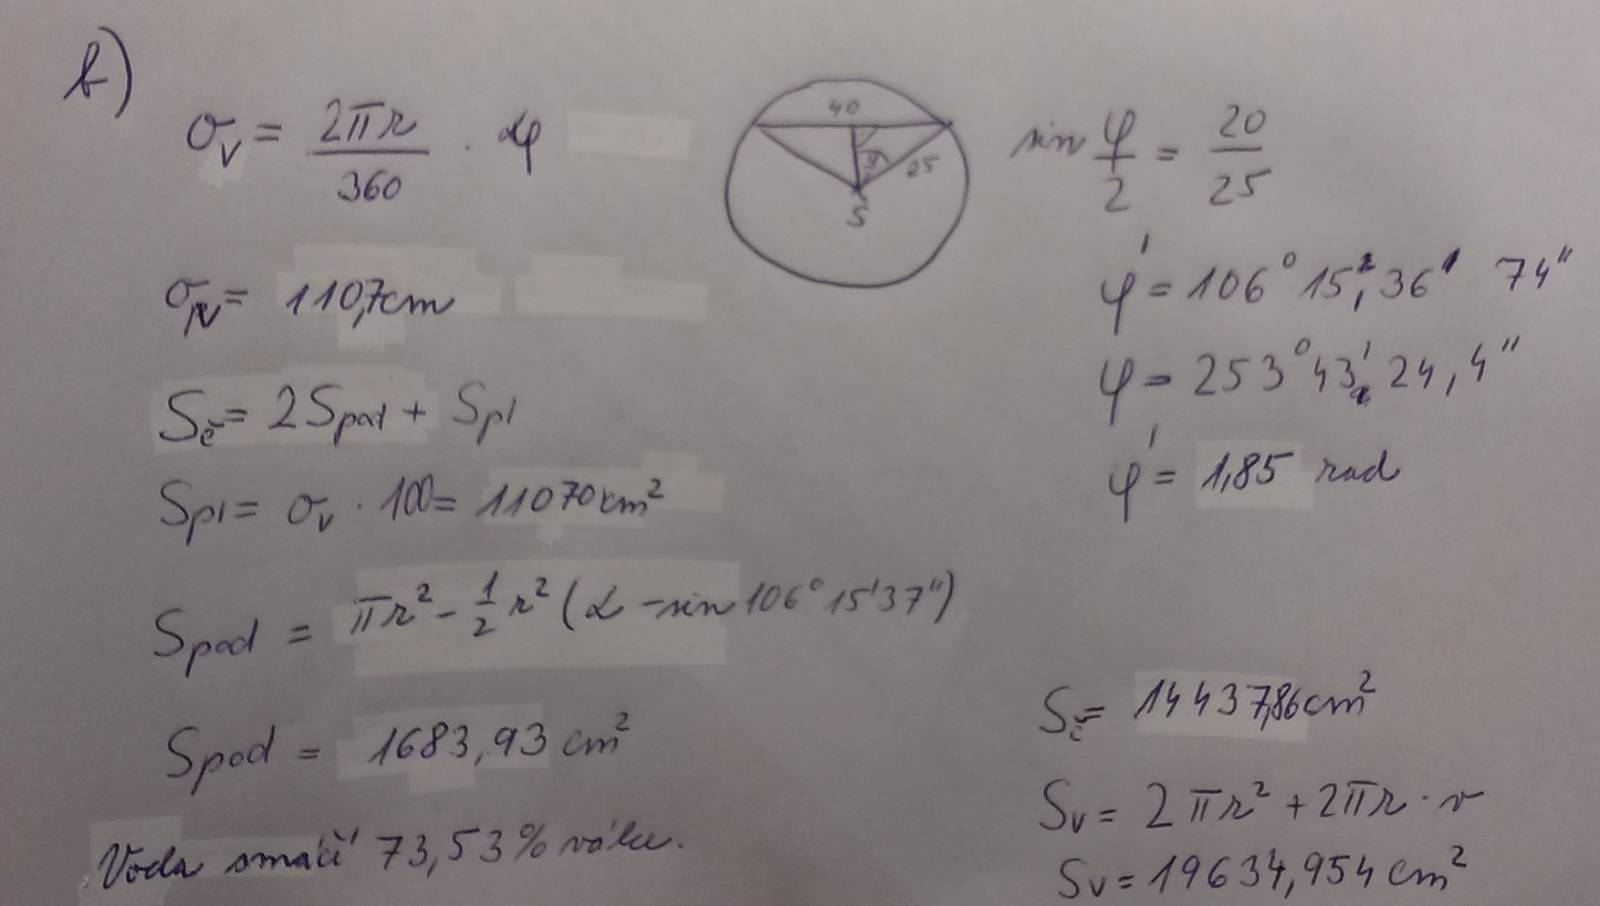 b)
σᵥ = 2πr / 360 · φ
40
φ/2
25
S
sin φ/2 = 20/25
σᵥ = 110,7cm
φ' = 106° 15' 36, 74"
φ = 253° 43' 24,4"
φ' = 1,85 rad
Sč = 2Spod + Spl
Spl = σᵥ · 100 = 11070 cm²
Spod = πr² - 1/2 r² (α - sin 106° 15' 37")
Spod = 1683,93 cm²
Sč = 14437,86 cm²
Sᵥ = 2πr² + 2πr · v
Sᵥ = 19634,954 cm²
Voda smáčí 73,53% válce.